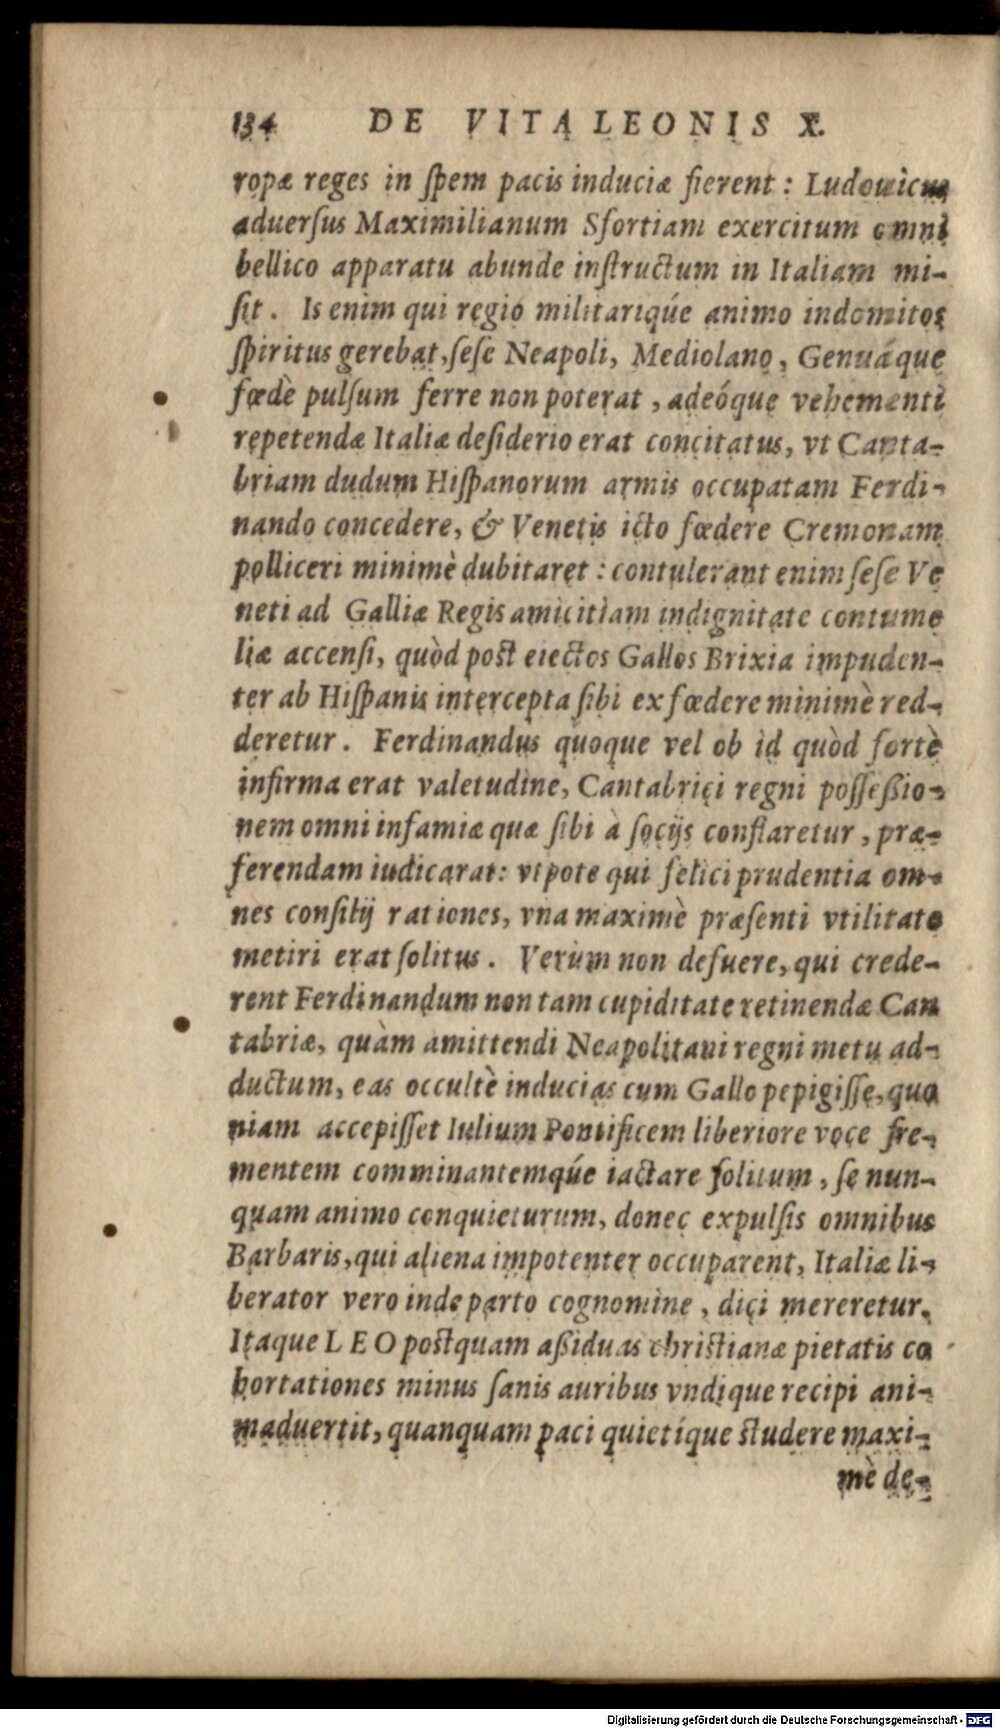 134 DE VITA LEONIS X.
ropæ reges in ſpem pacis induciæ fierent : Ludouicus
aduerſus Maximilianum Sfortiam exercitum omni
bellico apparatu abunde inſtructum in Italiam mi-
ſit. Is enim qui regio militariqúe animo indomitos
ſpiritus gerebat, ſeſe Neapoli, Mediolano, Genuáque
fœdè pulſum ferre non poterat, adeóque vehementi
repetendæ Italiæ deſiderio erat concitatus, vt Canta-
briam dudum Hiſpanorum armis occupatam Ferdi-
nando concedere, & Venetis icto fœdere Cremonam
polliceri minimè dubitaret : contulerant enim ſeſe Ve
neti ad Galliæ Regis amicitiam indignitate contume
liæ accenſi, quòd poſt eiectos Gallos Brixia impuden-
ter ab Hiſpanis intercepta ſibi ex fœdere minimè red-
deretur. Ferdinandus quoque vel ob id quòd fortè
infirma erat valetudine, Cantabrici regni poſſeßio-
nem omni infamiæ quæ ſibi à ſocijs conflaretur, præ-
ferendam iudicarat: vtpote qui felici prudentia om-
nes conſilij rationes, vna maximè præſenti vtilitate
metiri erat ſolitus. Verùm non defuere, qui crede-
rent Ferdinandum non tam cupiditate retinendæ Can
tabriæ, quàm amittendi Neapolitani regni metu ad-
ductum, eas occultè inducias cum Gallo pepigiſſe, quo
niam accepiſſet Iulium Pontificem liberiore voce fre-
mentem comminantemqúe iactare ſolitum, ſe nun-
quam animo conquieturum, donec expulſis omnibus
Barbaris, qui aliena impotenter occuparent, Italiæ li-
berator vero inde parto cognomine, dici mereretur.
Itaque LEO poſtquam aßiduas chriſtianæ pietatis co
hortationes minus ſanis auribus vndique recipi ani-
maduertit, quanquam paci quietíque ſtudere maxi-
mè de-
Digitalisierung gefördert durch die Deutsche Forschungsgemeinschaft - DFG